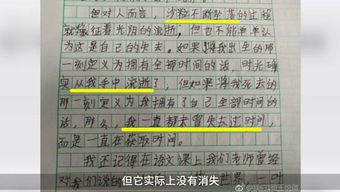 但对人而言，沙粒不断坠落的过程
就像往着光阴的流逝。但也不能单单认
为这是自己的失去。如果将我出生的那
一刻定义为拥有全部时间的话，时光确
实从我手中流逝了，但如果将我死去的
那一刻定义为我拥有了自己全部时间的
话，那么，我一直都未曾失去过时间，
而是一直在获取时间。
我还记得在语文课上我们老师曾经
对我们说
但它实际上没有消失